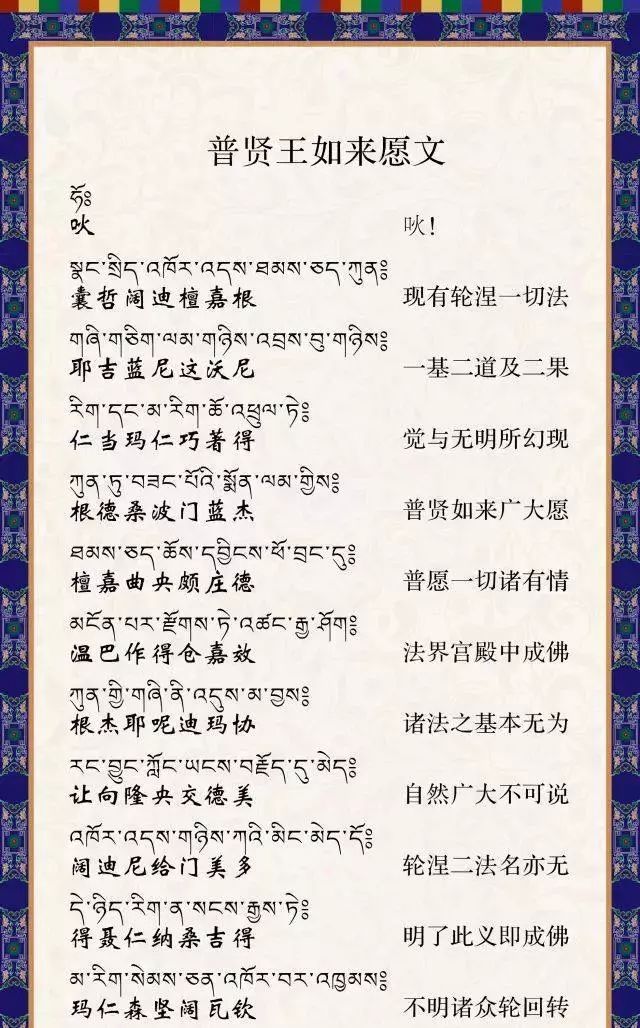 普贤王如来愿文
ཧོ༔
吙 吙！
སྣང་སྲིད་འཁོར་འདས་ཐམས་ཅད་ཀུན༔
囊哲阔迪檀嘉根 现有轮涅一切法
གཞི་གཅིག་ལམ་གཉིས་འབྲས་བུ་གཉིས༔
耶吉蓝尼这沃尼 一基二道及二果
རིག་དང་མ་རིག་ཆོ་འཕྲུལ་ཏེ༔
仁当玛仁巧著得 觉与无明所幻现
ཀུན་ཏུ་བཟང་པོའི་སྨོན་ལམ་གྱིས༔
根德桑波门蓝杰 普贤如来广大愿
ཐམས་ཅད་ཆོས་དབྱིངས་ཕོ་བྲང་དུ༔
檀嘉曲央颇庄德 普愿一切诸有情
མངོན་པར་རྫོགས་ཏེ་འཚང་རྒྱ་ཤོག༔
温巴作得仓嘉效 法界宫殿中成佛
ཀུན་གྱི་གཞི་ནི་འདུས་མ་བྱས༔
根杰耶呢迪玛协 诸法之基本无为
རང་བྱུང་ཀློང་ཡངས་བརྗོད་དུ་མེད༔
让向隆央交德美 自然广大不可说
འཁོར་འདས་གཉིས་ཀའི་མིང་མེད་དོ༔
阔迪尼给门美多 轮涅二法名亦无
དེ་ཉིད་རིག་ན་སངས་རྒྱས་ཏེ༔
得聂仁纳桑吉得 明了此义即成佛
མ་རིག་སེམས་ཅན་འཁོར་བར་འཁྱམས༔
玛仁森坚阔瓦钦 不明诸众轮回转